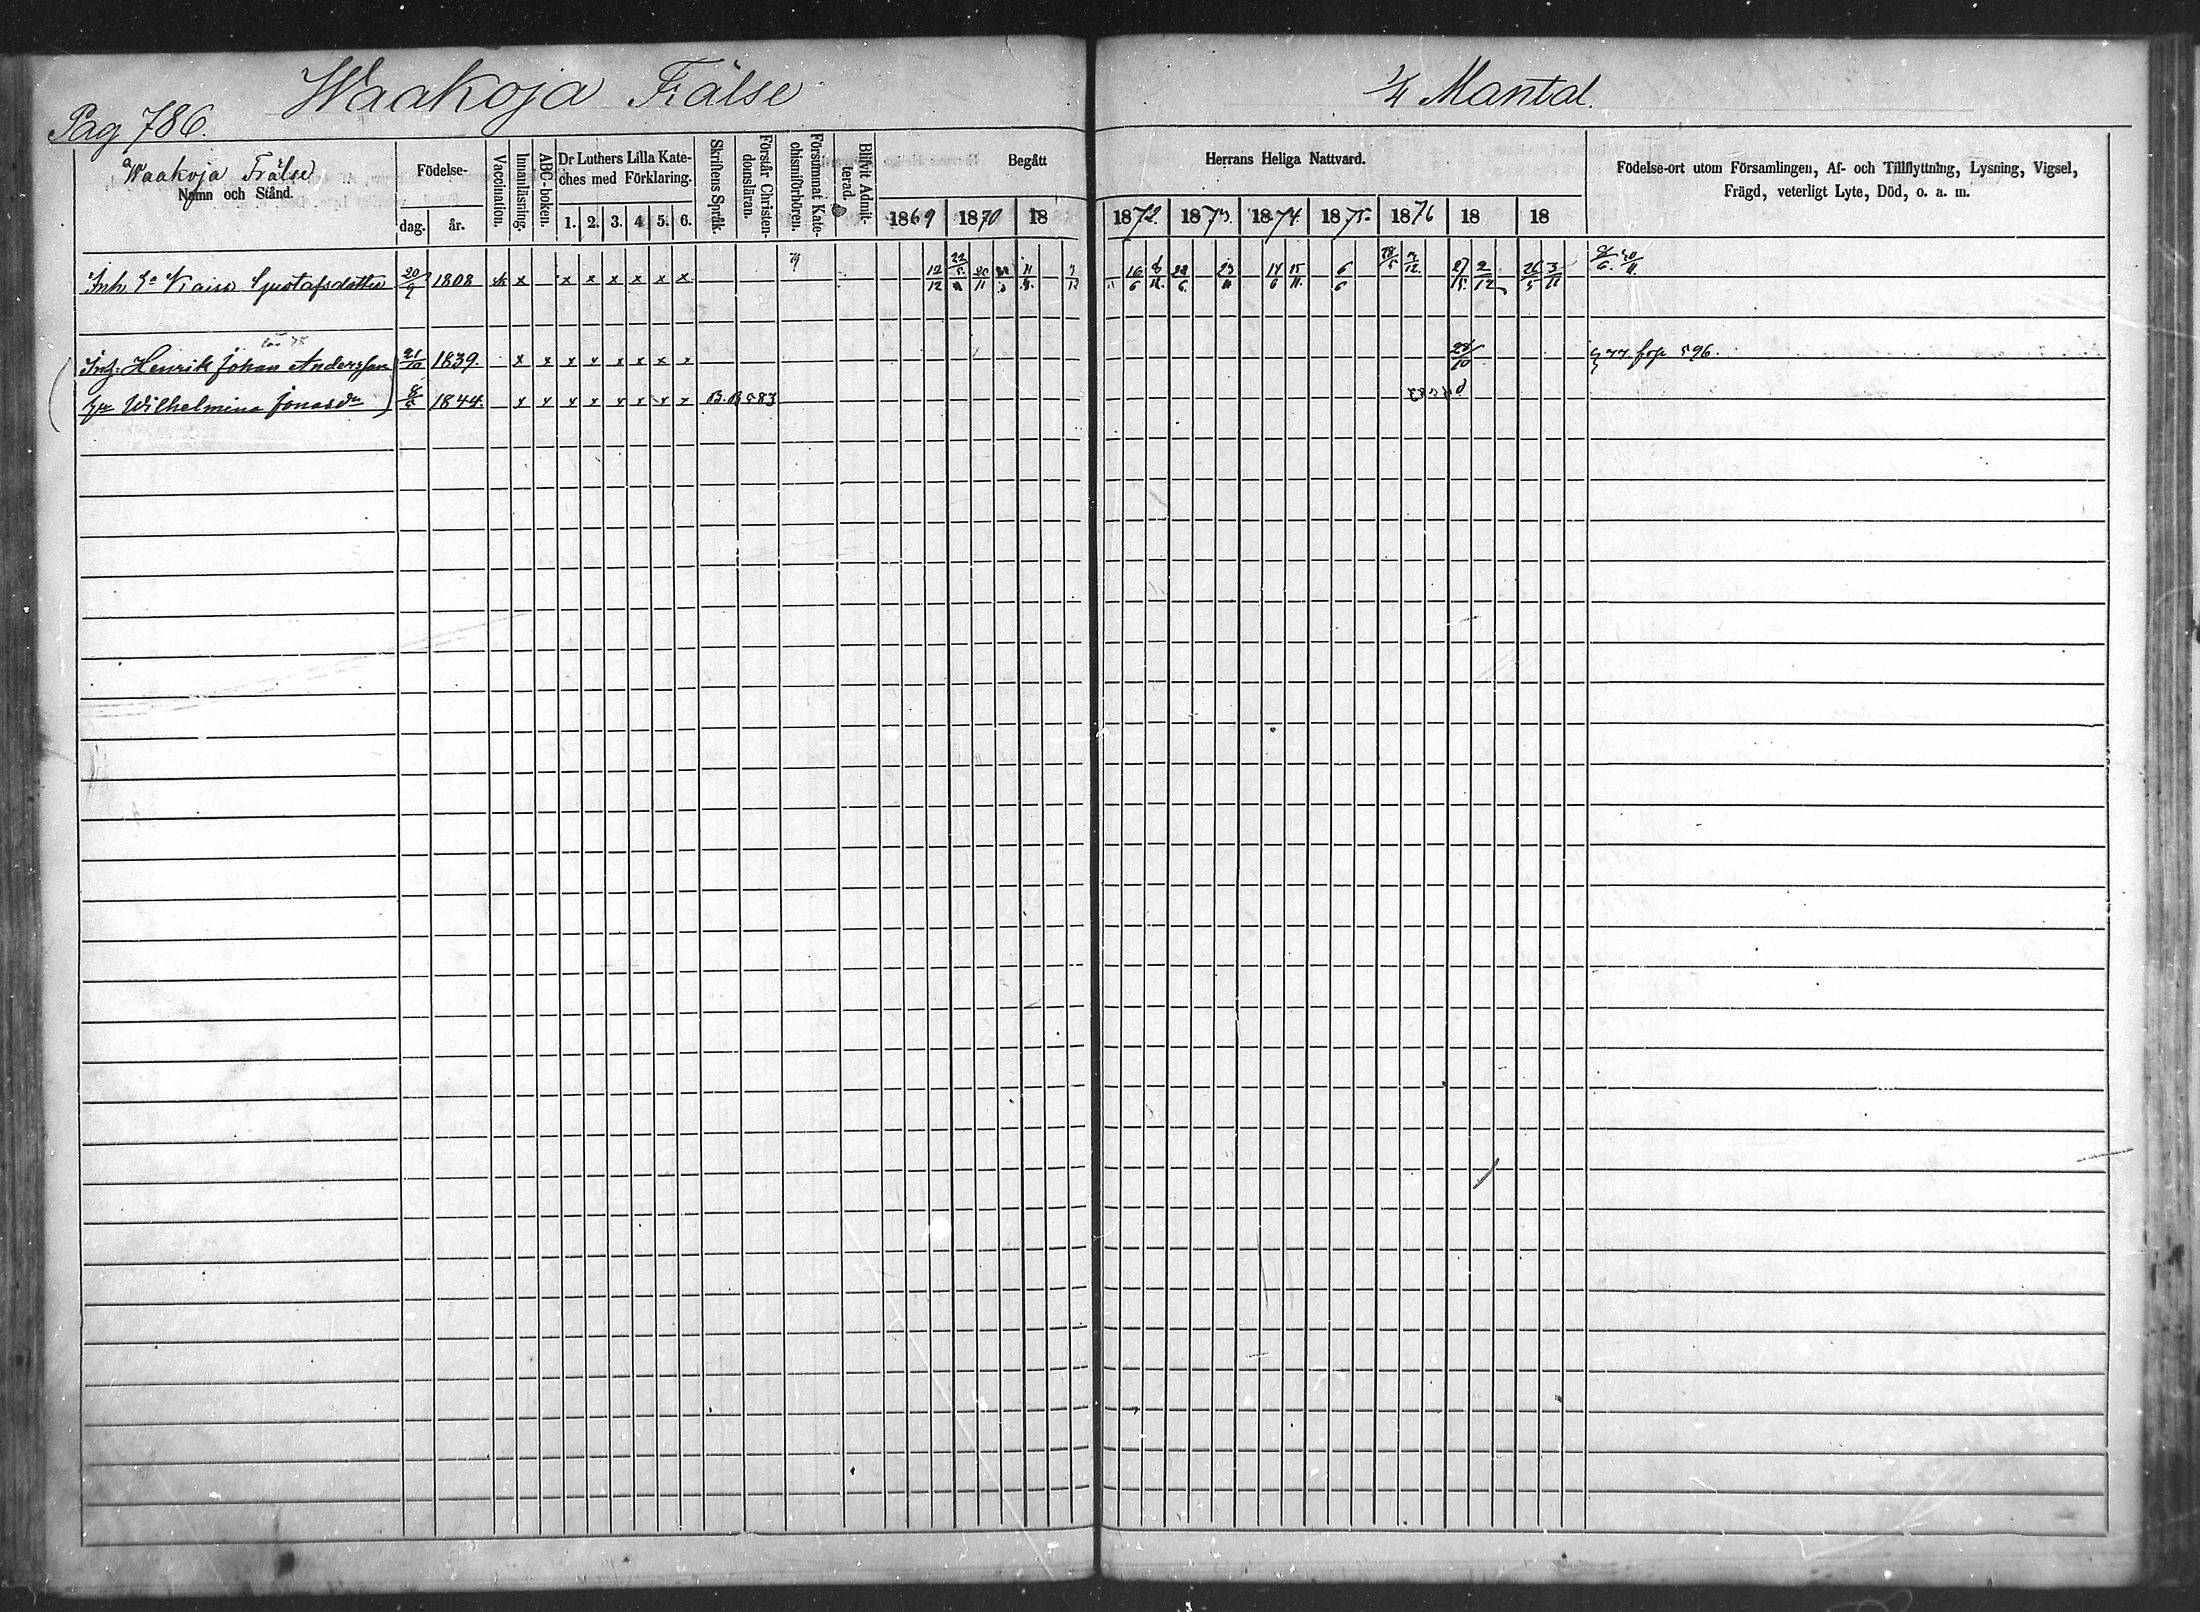 Waakoja Frälse
1/4 Mantal.
Pag 786.
Waakoja Frälse
Namn och Stånd.
Födelse-
dag. år.
Vaccination.
Innanläsning.
ABC-boken.
Dr Luthers Lilla Kate-
ches med Förklaring.
1. 2. 3. 4 5. 6.
Skriftens Språk.
Förstår Christen-
domsläran.
Försummat Kate-
chismiförhören.
Blifvit Admit-
terad.
Begått
1869 1870 18
Herrans Heliga Nattvard.
1872. 1873. 1874. 1875. 1876 18 18
Födelse-ort utom Församlingen, Af- och Tillflyttning, Lysning, Vigsel,
Frägd, veterligt Lyte, Död, o. a. m.
Inh Ea Kaisa Gustafsdotter 20/9 1808 x x x x x x x 12/12 16/6 23/11 14/6 15/11 6/6 27/5 2/12 26/5 3/11
Inh. Henrik Johan Andersson 21/10 1839. x x x x x x x x 28/10 77 frp 596.
Hu Wilhelmina Jonasdr 1844. x x x x x x x x B. B 583